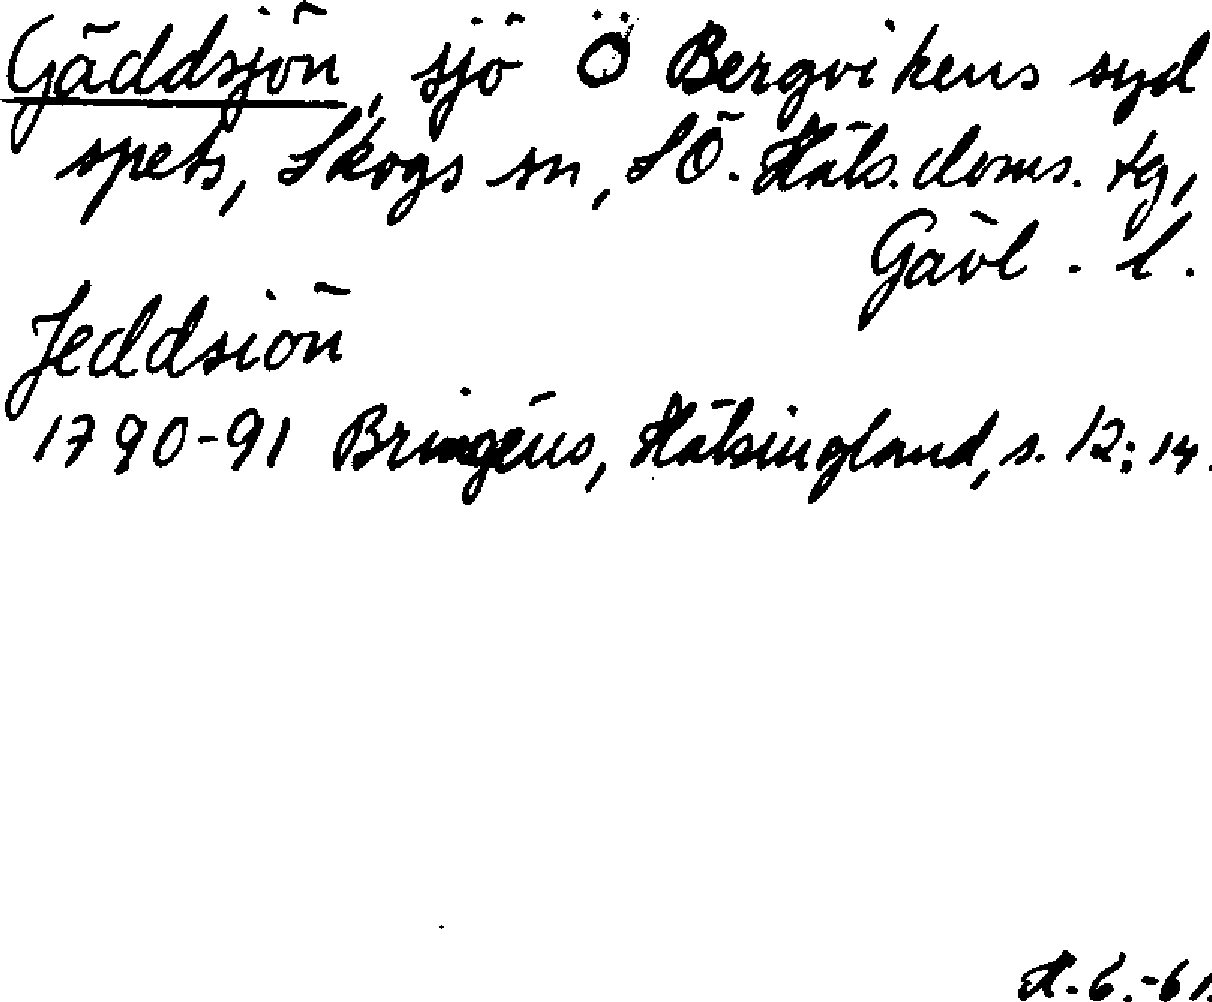 Gäddsjön, sjö Ö Bergvikens syd
spets, Skogs sn, SÖ. Häls. doms. tg,
Gävl. l.
Jeddsiön
1790-91 Bringéus, Hälsingland, s. 12; 14.
H. 6.-61.